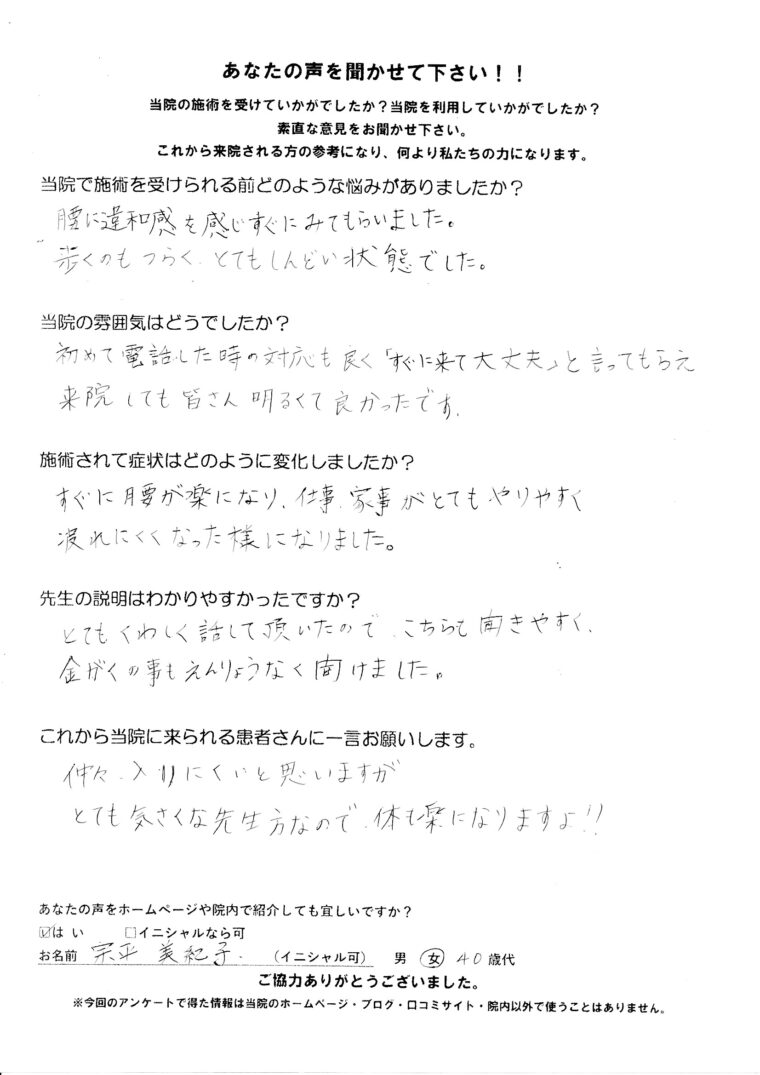 あなたの声を聞かせて下さい！！
当院の施術を受けていかがでしたか？当院を利用していかがでしたか？
素直な意見をお聞かせ下さい。
これから来院される方の参考になり、何より私たちの力になります。
当院で施術を受けられる前どのような悩みがありましたか？
腰に違和感を感じすぐにみてもらいました。
歩くのもつらく、とてもしんどい状態でした。
当院の雰囲気はどうでしたか？
初めて電話した時の対応も良く「すぐに来て大丈夫」と言ってもらえ
来院しても皆さん明るくて良かったです。
施術されて症状はどのように変化しましたか？
すぐに腰が楽になり、仕事、家事がとてもやりやすく
疲れにくくなった様になりました。
先生の説明はわかりやすかったですか？
とてもくわしく話して頂いたので、こちらも聞きやすく、
金がくの事もえんりょうなく聞けました。
これから当院に来られる患者さんに一言お願いします。
仲々、入りにくいと思いますが
とても気さくな先生方なので、体も楽になりますよ!!
あなたの声をホームページや院内で紹介しても宜しいですか？
☑はい □イニシャルなら可
お名前 宗平 美紀子. （イニシャル可） 男 女 40歳代
ご協力ありがとうございました。
※今回のアンケートで得た情報は当院のホームページ・ブログ・口コミサイト・院内以外で使うことはありません。